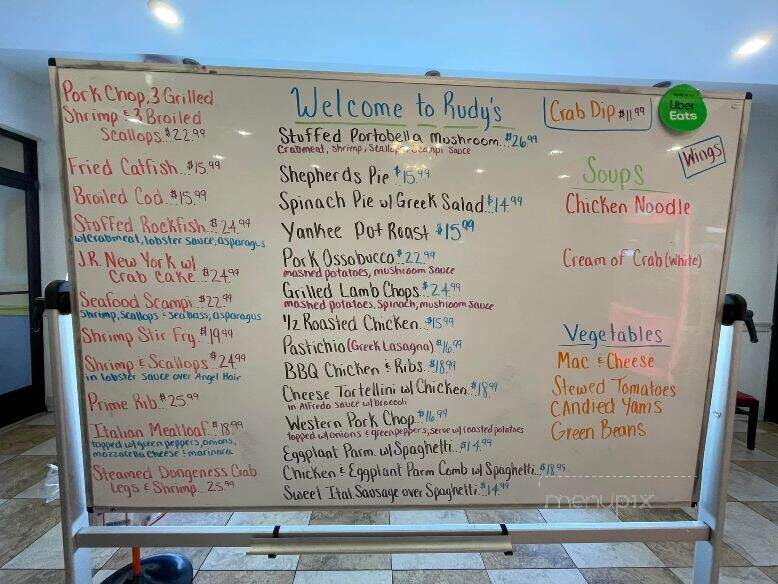 Pork Chop, 3 Grilled
Shrimp & 3 Broiled
Scallops..$22.99
Fried Catfish..$15.99
Broiled Cod..$15.99
Stuffed Rockfish..$24.99
w/crabmeat, lobster sauce, asparagus
J.R. New York w/
Crab Cake..$24.99
Seafood Scampi..$22.99
Shrimp, Scallops & sea bass, asparagus
Shrimp Stir Fry..$19.99
Shrimp & Scallops..$24.99
in lobster sauce over Angel Hair
Prime Rib..$25.99
Italian Meatloaf..$18.99
topped w/green peppers, onions,
mozzarella cheese & marinara
Steamed Dongeness Crab
Legs & Shrimp...25.99
Welcome to Rudy's
Stuffed Portobella Mushroom..$26.99
Crabmeat, shrimp, Scallops, Scampi Sauce
Shepherds Pie $15.99
Spinach Pie w/ Greek Salad..$14.99
Yankee Pot Roast $15.99
Pork Ossobucco..$22.99
mashed potatoes, mushroom Sauce
Grilled Lamb Chops..$24.99
mashed potatoes, Spinach, mushroom Sauce
1/2 Roasted Chicken...$15.99
Pastichio (Greek Lasagna) $16.99
BBQ Chicken & Ribs..$18.99
Cheese Tortellini w/ Chicken..$18.99
in Alfredo Sauce w/broccoli
Western Pork Chop..$16.99
topped w/onions & green peppers, serve w/ roasted potatoes
Eggplant Parm. w/Spaghetti..$14.99
Chicken & Eggplant Parm Comb w/ Spaghetti..$18.99
Sweet Ital. Sausage over Spaghetti..$14.99
Crab Dip $11.99
Uber
Eats
Wings
Soups
Chicken Noodle
Cream of Crab (White)
Vegetables
Mac & Cheese
Stewed Tomatoes
CAndied Yams
Green Beans
menupix